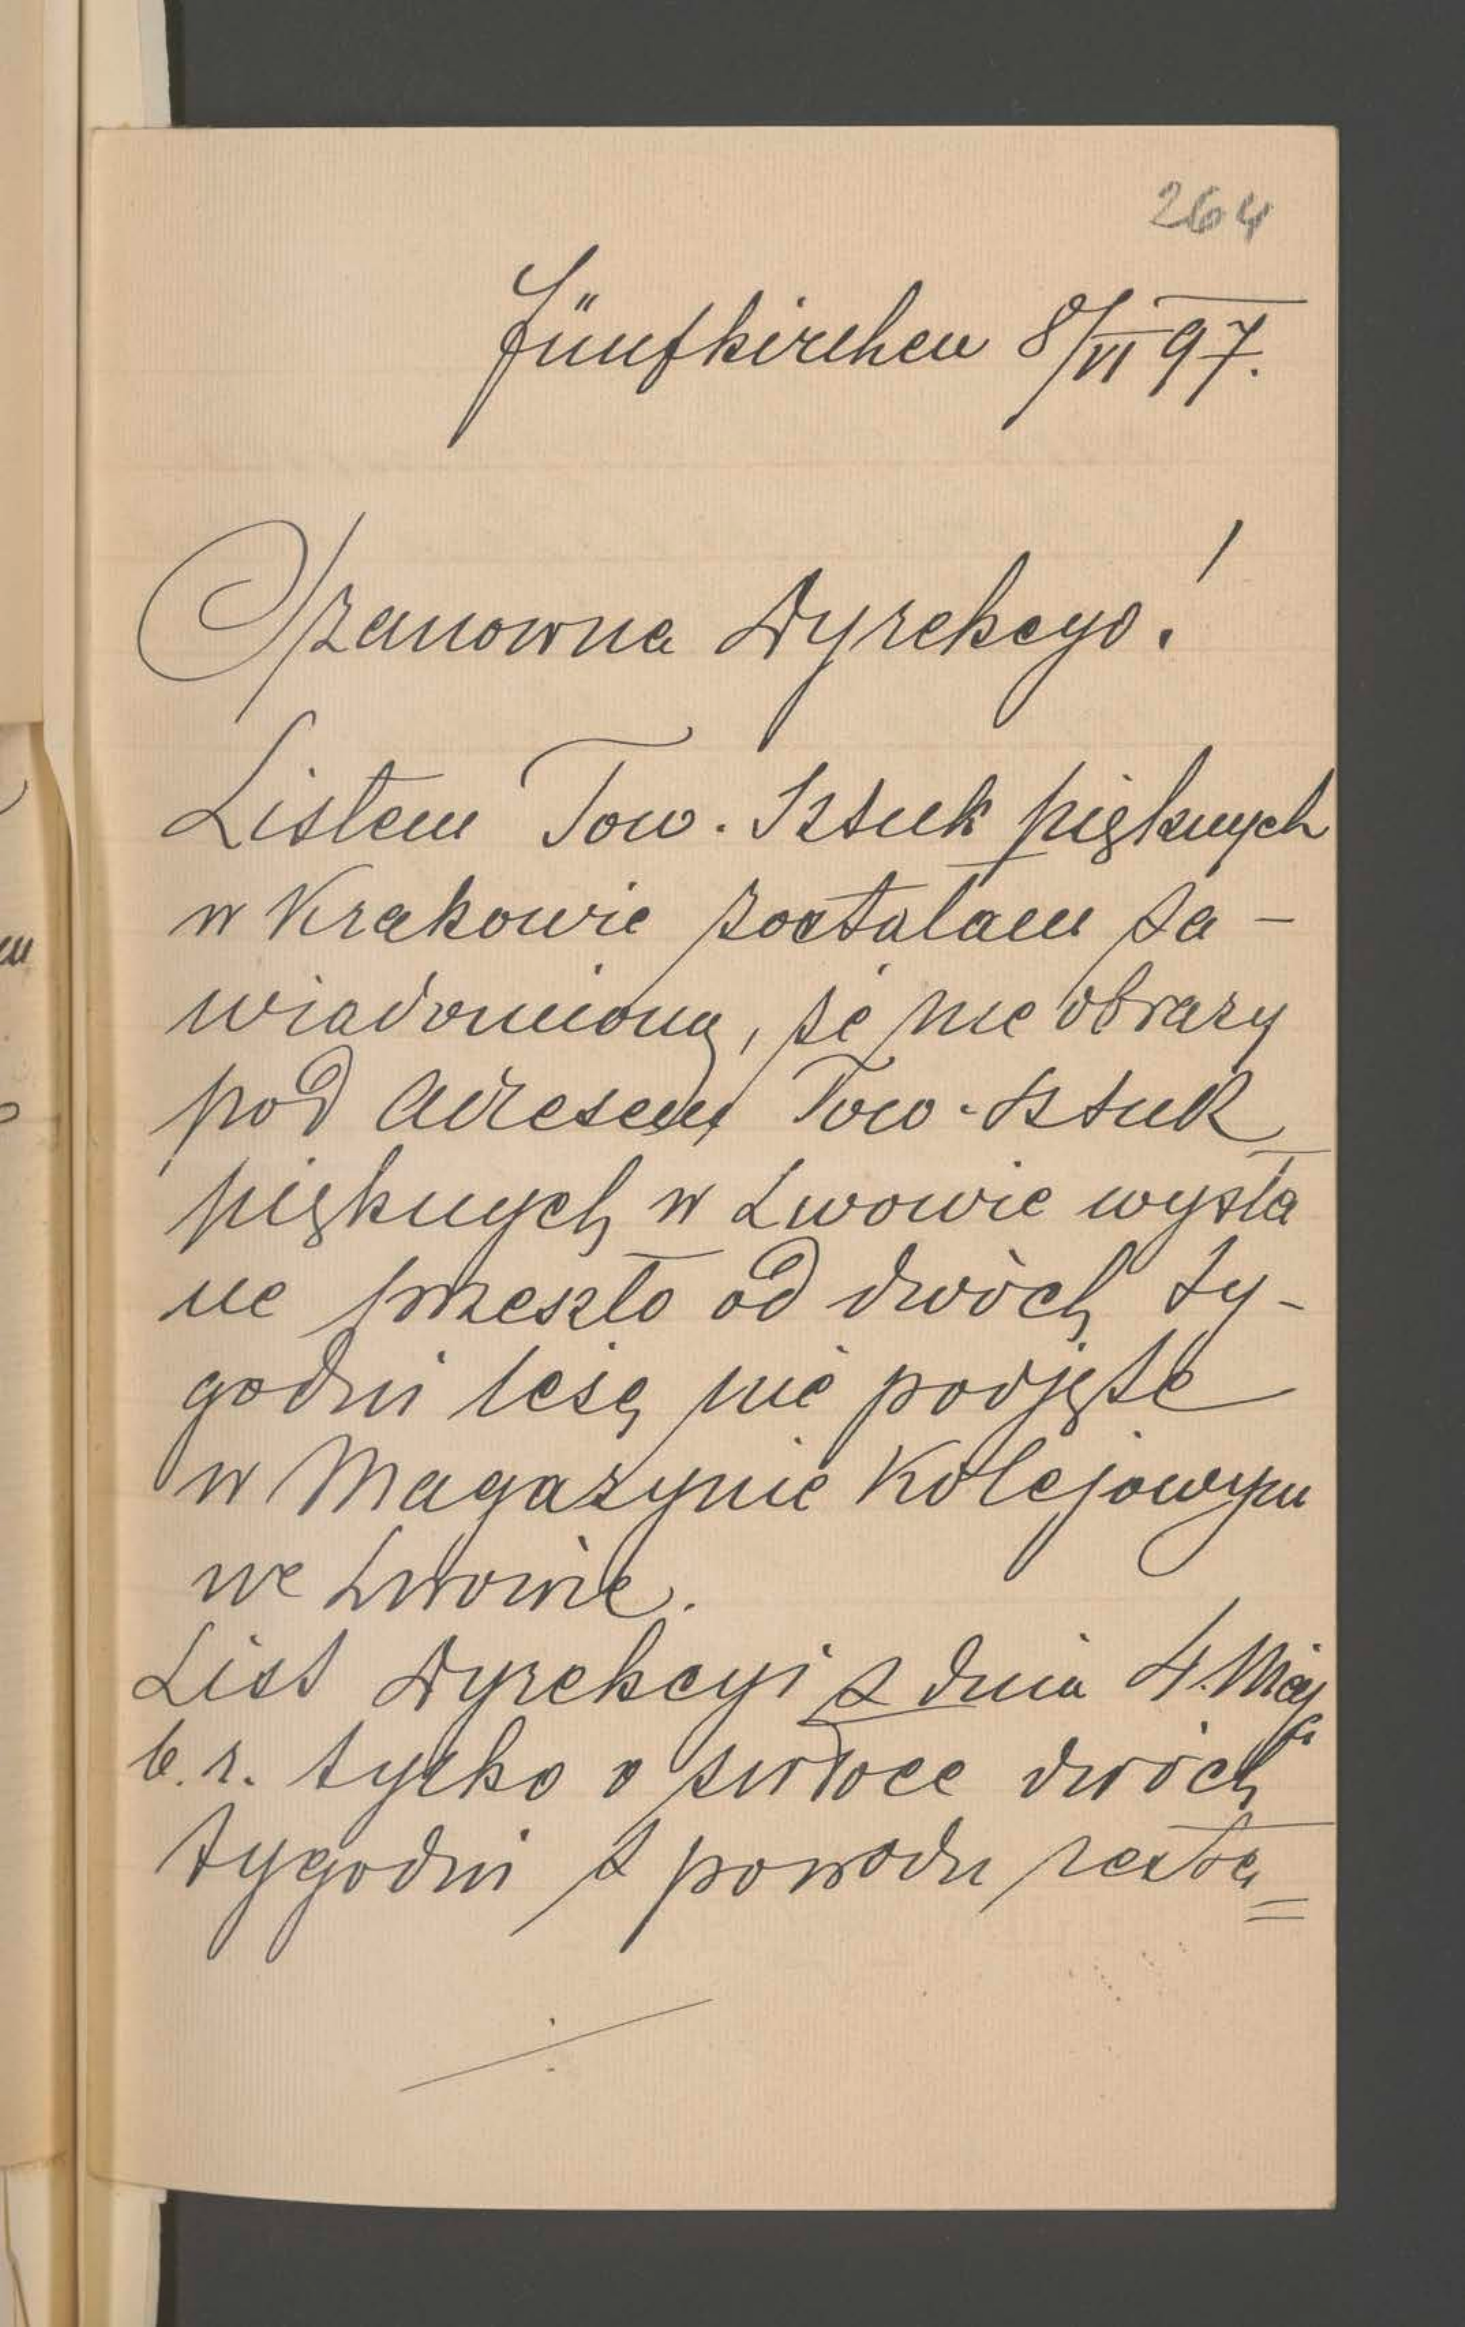 264
Fünfkirchen 8/VI 97.
Szanowna Dyrekcyo!
Listem Tow. Sztuk pięknych
w Krakowie zostałam za-
wiadomioną, że me obrazy
pod adresem Tow. Sztuk
pięknych w Lwowie wysła
ne przeszło od dwóch ty-
godni leżą nie podjęte
w Magazynie Kolejowym
we Lwowie.
List Dyrekcyi z dnia 4. Maja
b. r. tylko o zwłoce dwóch
tygodni z powodu resta=